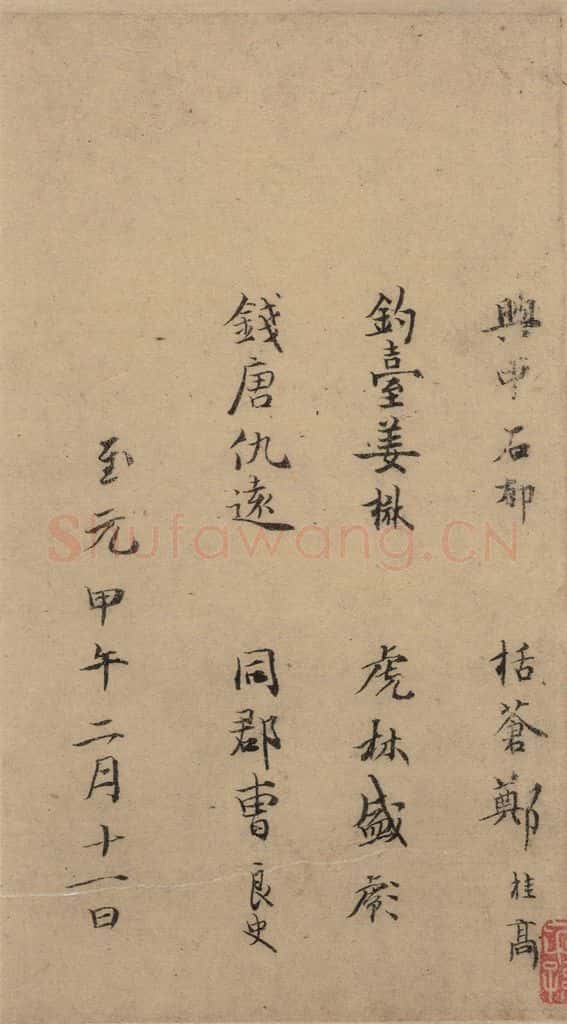 興中石 栝蒼鄭桂高
釣臺姜 虎林盛彪
錢唐仇遠 同郡曹良史
至元甲午二月十一日
Shufawang.CN